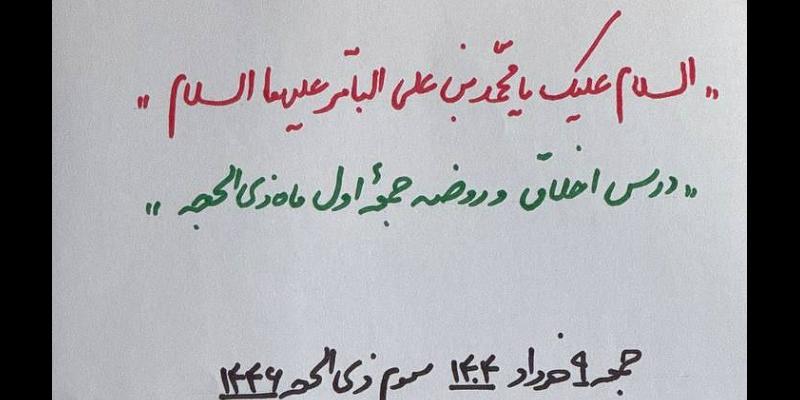 "السلام علیک یا محمّد بن علی الباقر علیهما السلام"
"درس اخلاق و روضه جمعۀ اول ماه ذی الحجه"
جمعه ۹ خرداد ۱۴۰۴ سوم ذی الحجه ۱۴۴۶